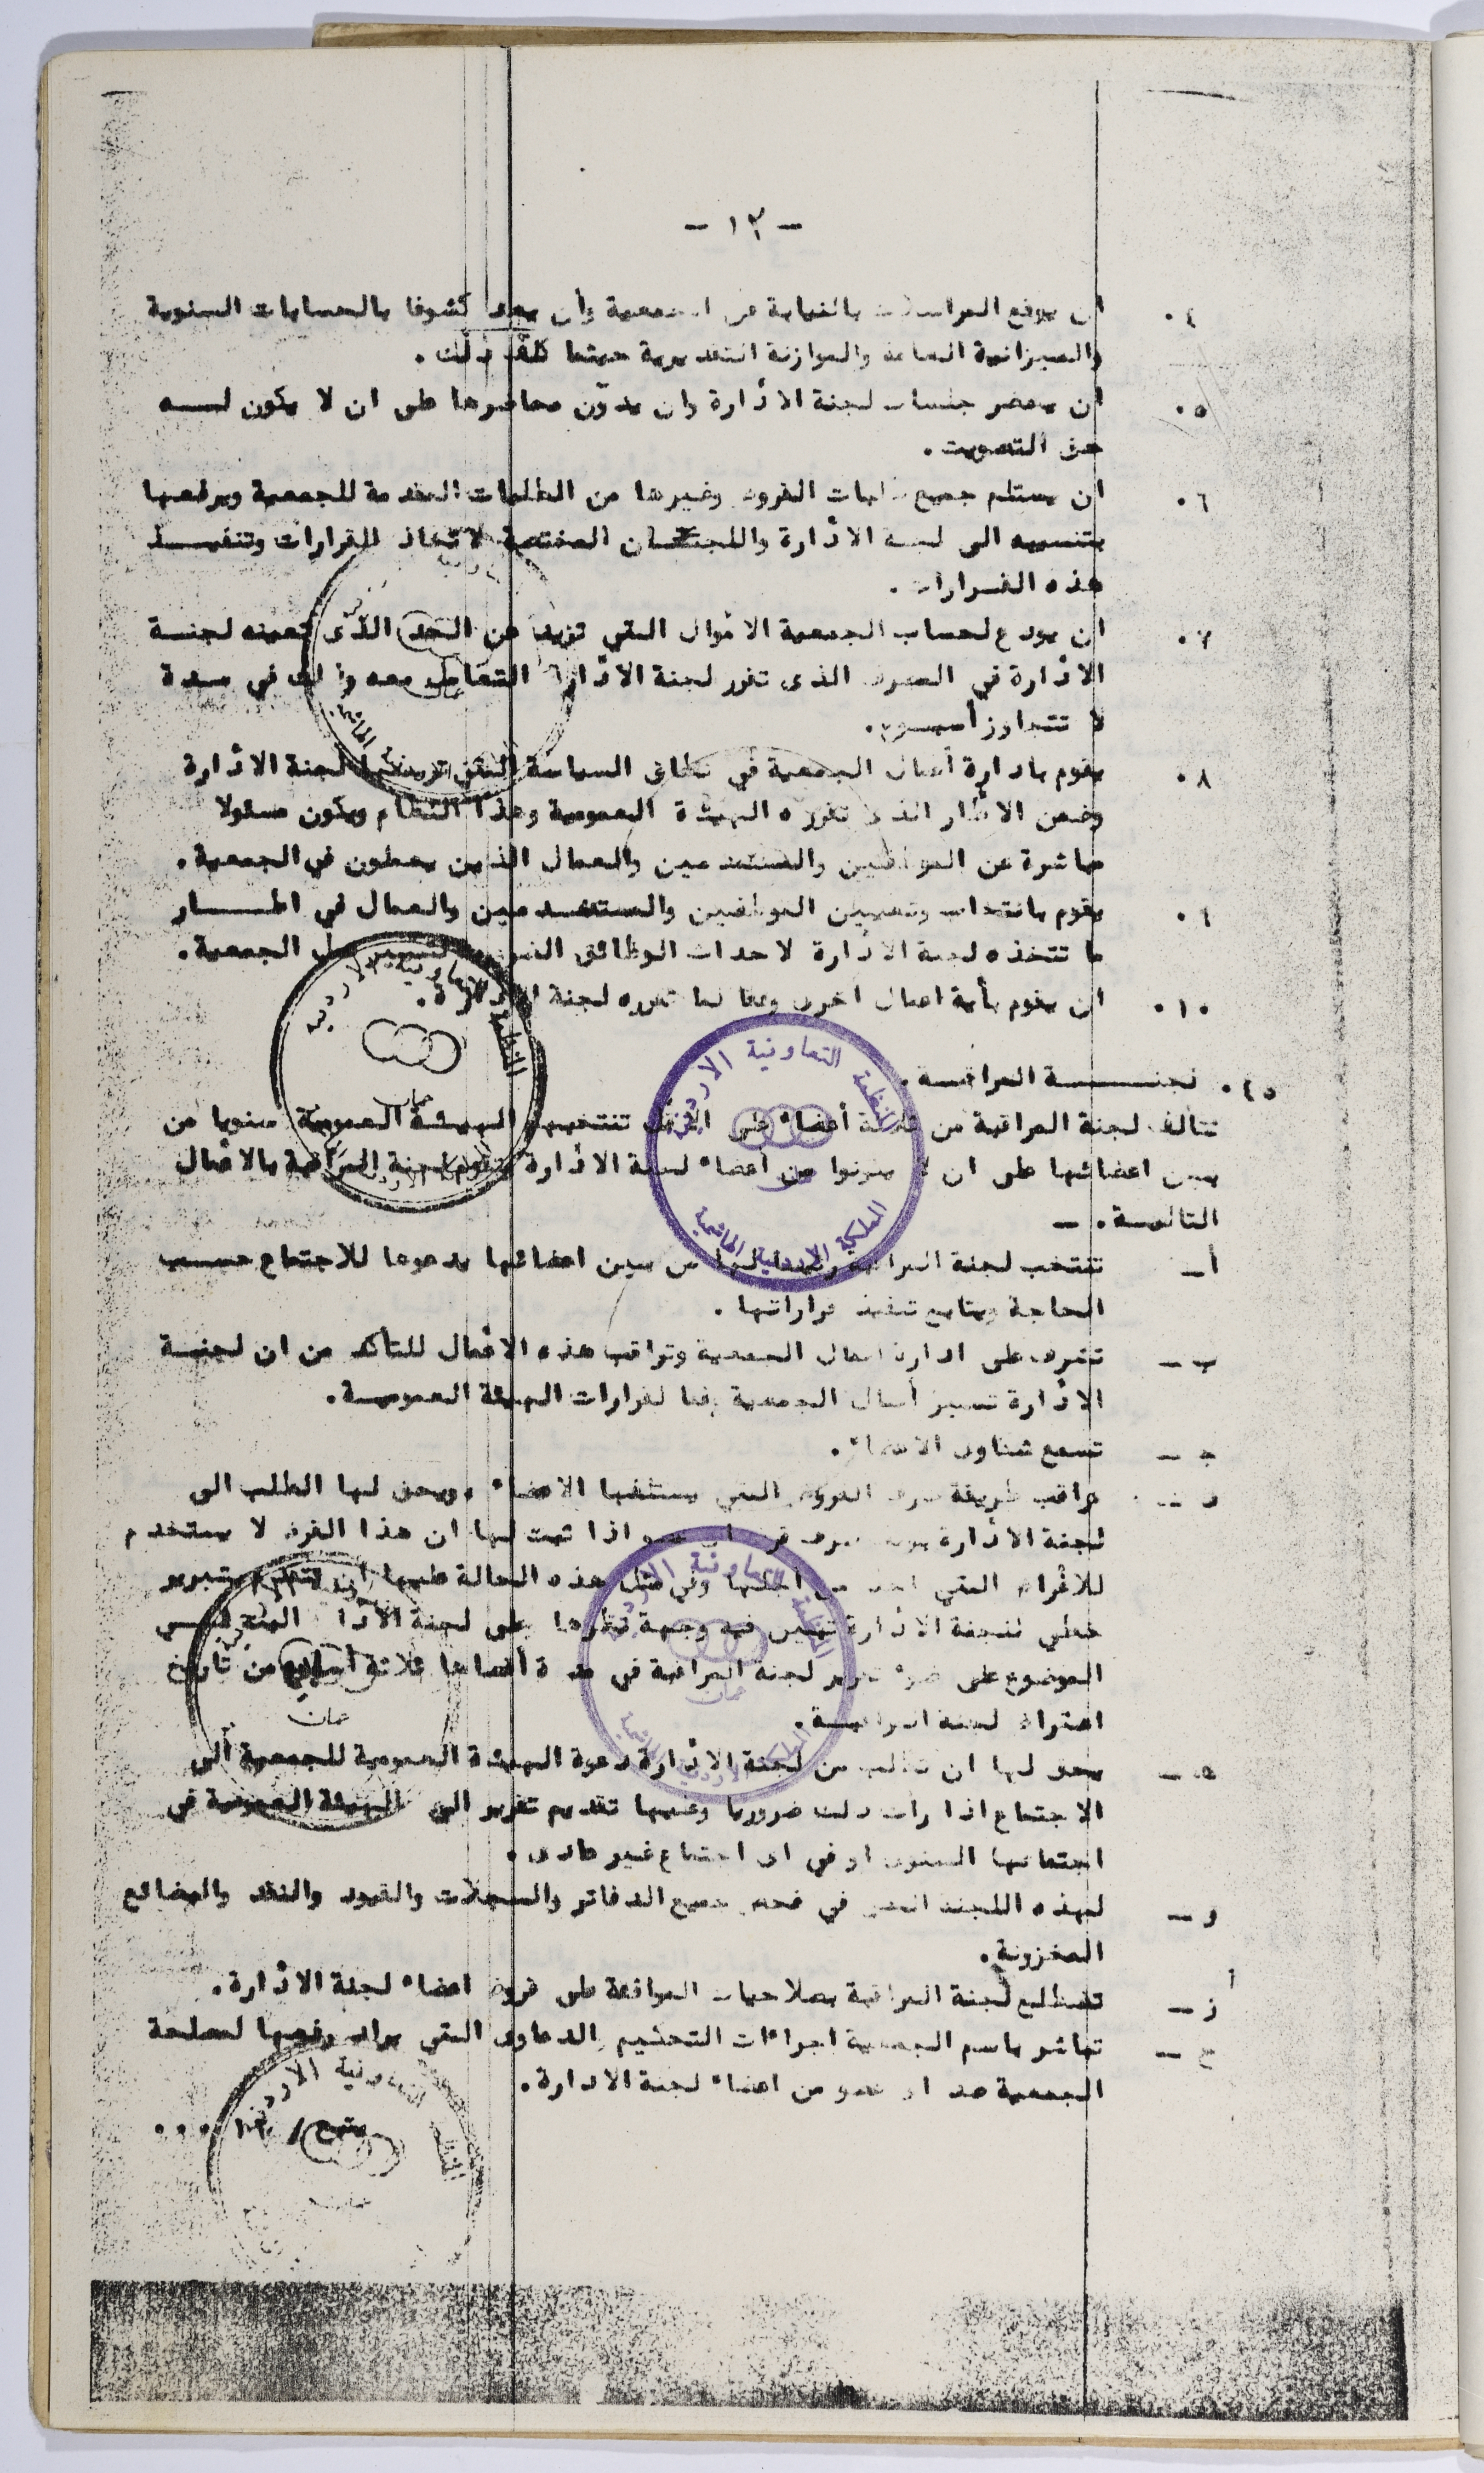 - ١٢ -
٤. ان يوقع المراسلات بالنيابة عن الجمعية وأن يعد كشوفا بالحسابات السنوية
والميزانية العامة والموازنة التقديرية حيثما كلف ذلك.
٥. ان يحضر جلسات لجنة الادارة وان يدوّن محاضرها على ان لا يكون لـــه
حق التصويت.
٦. ان يستلم جميع طلبات القروض وغيرها من الطلبات المقدمة للجمعية ويرفعها
بتنسيبه الى لجنة الادارة واللجان المختصة لاتخاذ القرارات وتنفيـــذ
هذه القرارات.
٧. ان يودع لحساب الجمعية الاموال التي تزيد عن الحد الذى تعينه لجنـة
الادارة في المصرف الذى تقرر لجنة الادارة التعامل معه وذلك في مـدة
لا تتجاوز أسبوع.
٨. يقوم بادارة أعمال الجمعية في نطاق السياسة التي ترسمها لجنة الادارة
وضمن الاطار الذى تقرره الهيئة العمومية وهذا النظام ويكون مسئولا
مباشرة عن الموظفين والمستخدمين والعمال الذين يعملون في الجمعية.
٩. يقوم بانتخاب وتعيين الموظفين والمستخدمين والعمال في اطــار
ما تتخذه لجنة الادارة لاحداث الوظائف لتسيير عمل الجمعية.
١٠. ان يقوم بأية اعمال اخرى وفقا لما تقرره لجنة الادارة.
٤٥. لجنـــــة المراقبـة.
تتألف لجنة المراقبة من ثلاثة أعضاء على الاقل تنتخبهم الهيئة العمومية سنويا من
بين اعضائها على ان لا يكونوا من أعضاء لجنة الادارة وتقوم لجنة المراقبة بالاعمال
التاليـة. -
أ - تنتخب لجنة المراقبة رئيسا لها من بين اعضائها يدعوها للاجتماع حسـب
الحاجة ويتابع تنفيذ قراراتها.
ب - تشرف على ادارة اعمال الجمعية وتراقب هذه الاعمال للتأكد من ان لجنـة
الادارة تسير أعمال الجمعية وفقا لقرارات الهيئة العموميـة.
ج - تسمع شكاوى الاعضاء.
د - تراقب طريقة صرف القروض التي يستلفها الاعضاء، ويحق لها الطلب الى
لجنة الادارة صرف قرض اى عضو اذا ثبت لها ان هذا القرض لا يستخدم
للاغراض التي اخذ من اجلها وفي مثل هذه الحالة عليها ان تتقدم بتبرير
خطي للجنة الادارة تبين فيه وجهة نظرها وعلى لجنة الادارة البت فــي
الموضوع على ضوء تقرير لجنة المراقبة في مدة أقصاها ثلاثة أسابيع من تاريخ
اعتراض لجنة المراقبـة.
هـ - يحق لها ان تطلب من لجنة الادارة دعوة الهيئة العمومية للجمعية الى
الاجتماع اذا رأت ذلك ضروريا وعليها تقديم تقرير الى الهيئة العمومية في
اجتماعها السنوى او في اى اجتماع غير عادى.
و - لهذه اللجنة الحق في فحص جميع الدفاتر والسجلات والقيود والنقد والبضائع
المخزونة.
ز - تضطلع لجنة المراقبة بصلاحيات الموافقة على قروض اعضاء لجنة الادارة.
ح - تباشر باسم الجمعية اجراءات التحكيم والدعاوى التي يراد رفعها لمصلحة
الجمعية ضد اى عضو من اعضاء لجنة الادارة.
يتبع / ...
المنظمة التعاونية الاردنية
عمان
المملكة الاردنية الهاشمية